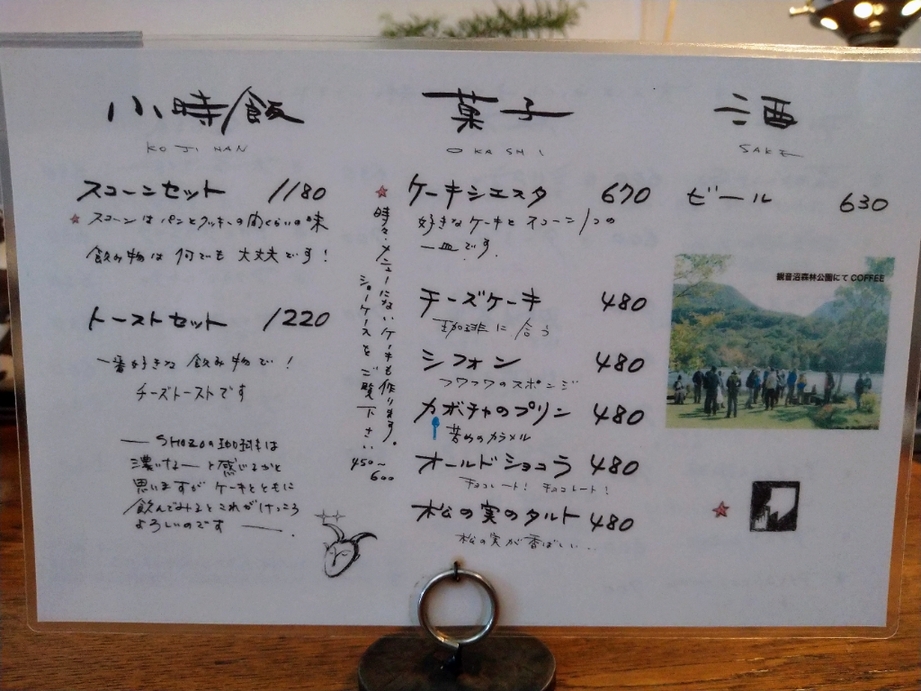 小時飯
KOJI HAN
スコーンセット 1180
スコーンはパンとクッキーの間くらいの味
飲み物は何でも大丈夫です!
トーストセット 1220
一番好きな飲み物で!
チーズトーストです
SHOZOの珈琲は
濃いなーと感じるかと
思いますがケーキとともに
飲んでみるとこれがけっこう
よろしいのです
時々メニューにないケーキも作ります。
ショーケースをご覧下さい
450〜
600
菓子
OKASHI
ケーキシエスタ 670
好きなケーキとスコーン1つの
一皿です。
チーズケーキ 480
珈琲に合う
シフォン 480
フワフワのスポンジ
カボチャのプリン 480
苦めのカラメル
オールドショコラ 480
チョコレート!チョコレート!
松の実のタルト 480
松の実が香ばしい...
酒
SAKE
ビール 630
観音沼森林公園にて COFFEE